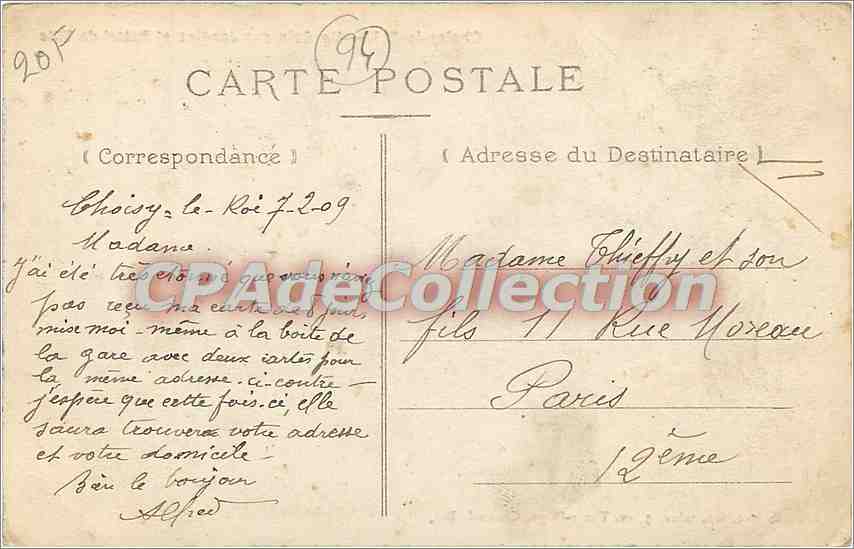 20F
94
CARTE POSTALE
( Correspondance )
( Adresse du Destinataire )
Choisy-le-Roi 7-2-09
Madame
J'ai été très étonné que vous n'ayez
pas reçu ma carte de
mise moi-même à la boîte de
la gare avec deux cartes pour
la même adresse-ci-contre-
j'espère que cette fois-ci, elle
saura trouver votre adresse
et votre domicile-
Bien le bonjour
Alfred
Madame Thieffry et son
fils 11 Rue Moreau
Paris
12ème
CPAdeCollection